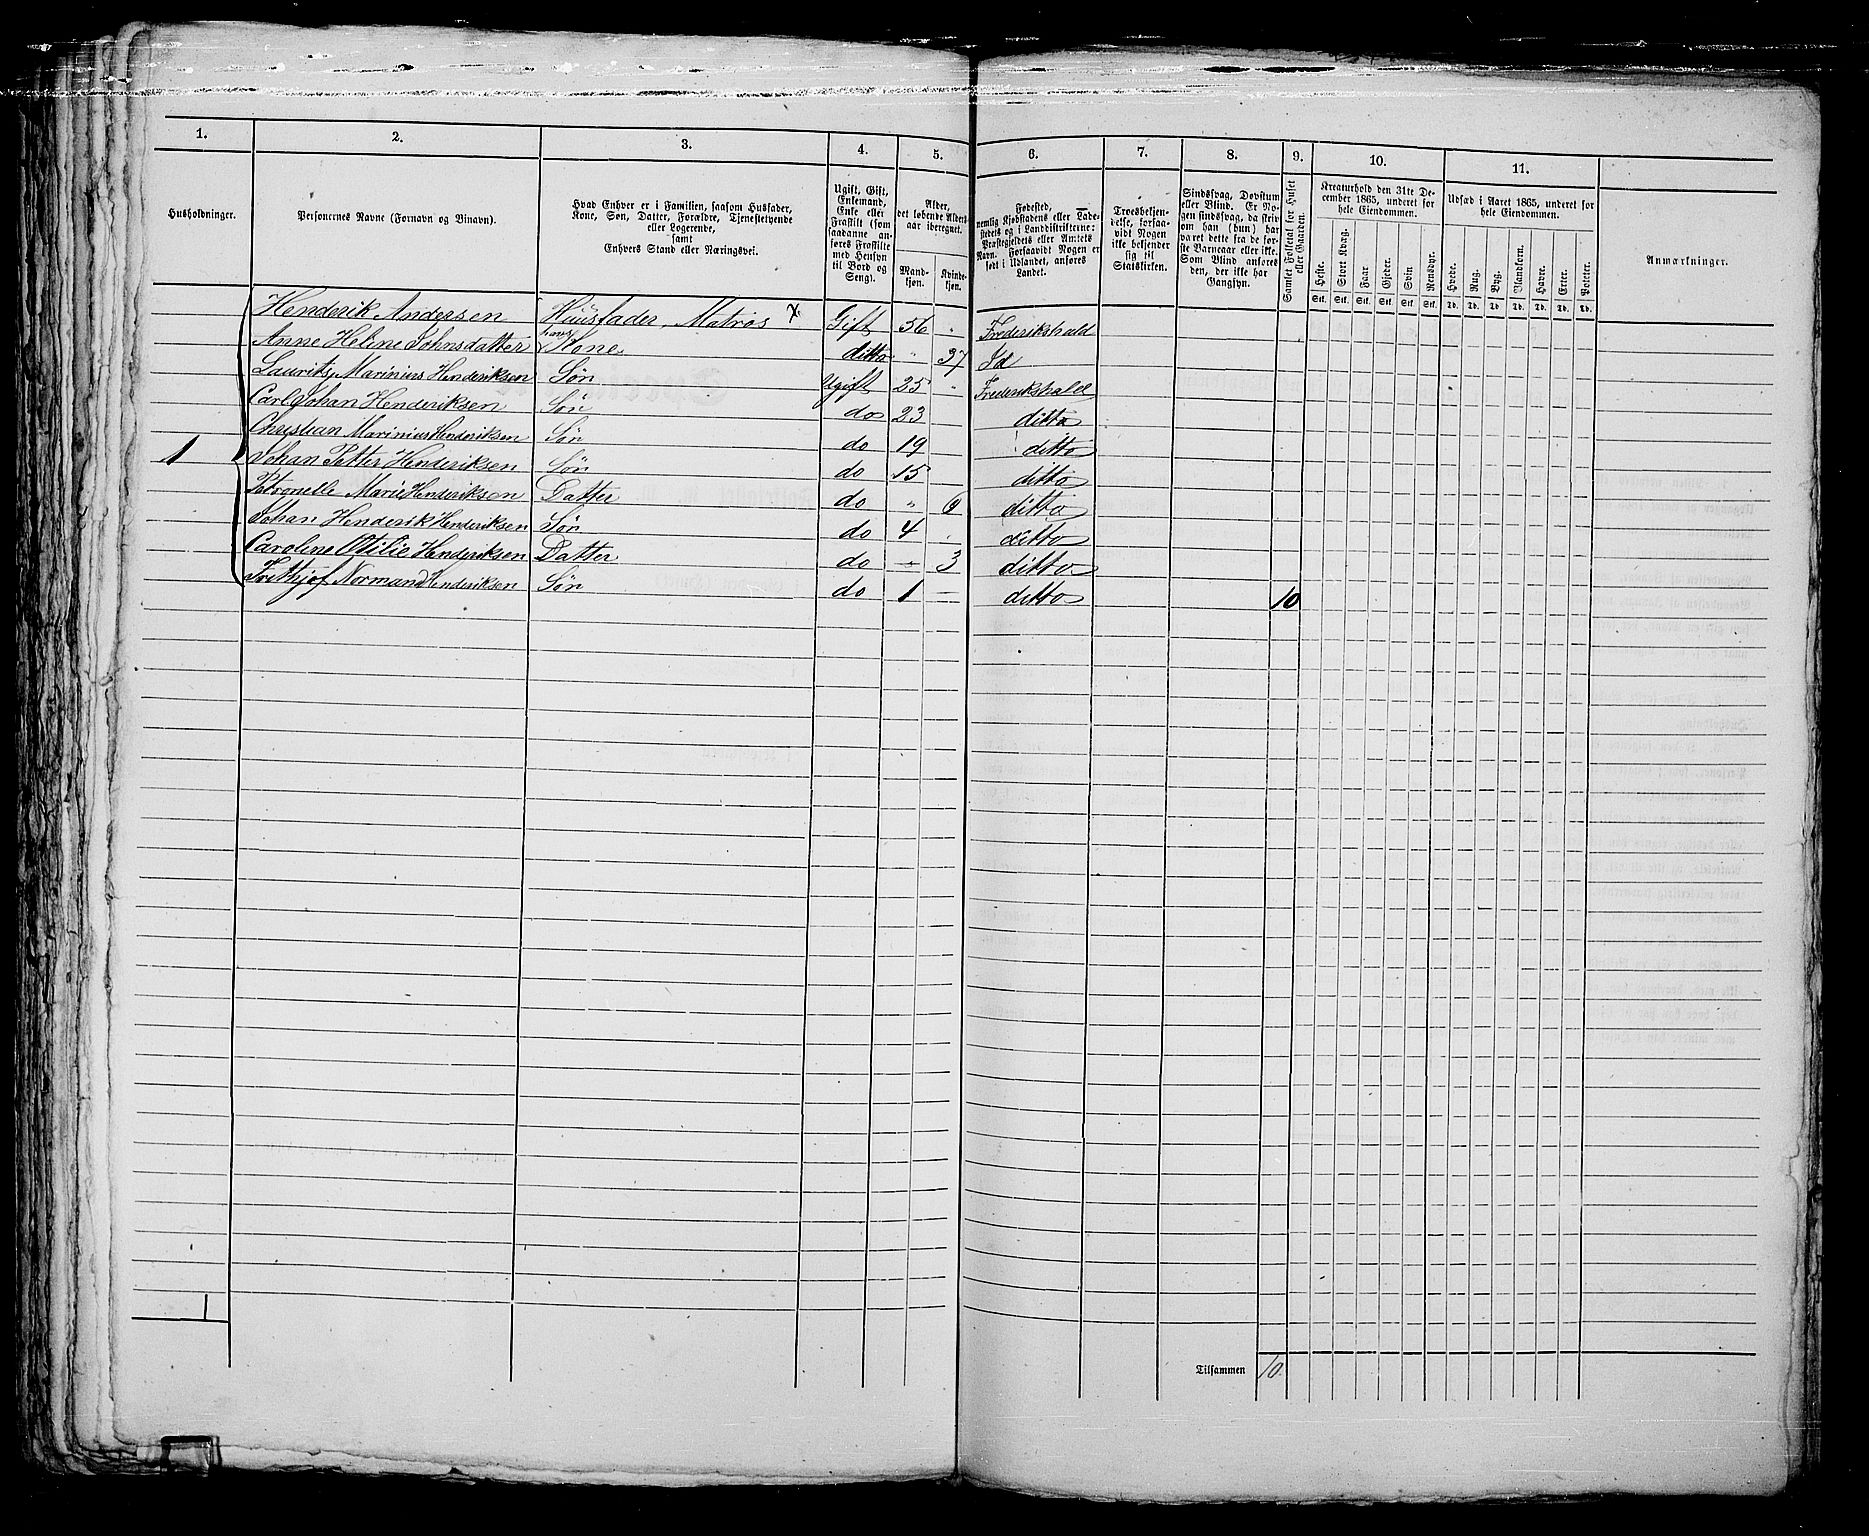 1. 2. 3. 4. 5. 6. 7. 8. 9. 10. 11.
Husholdninger.
Personernes Navne (Fornavn og Binavn).
Hvad Enhver er i Familien, saasom Husfader,
Kone, Søn, Datter, Forældre, Tjenestetyende
eller Logerende,
samt
Enhvers Stand eller Næringsvei.
Ugift, Gift,
Enkemand,
Enke eller
Fraskilt (som
saadanne an-
føres Fraskilte
med Hensyn
til Bord og
Seng).
Alder,
det løbende Alders-
aar iberegnet.
Mand-
kjøn.
Kvinde-
kjøn.
Fødested,
nemlig Kjøbstadens eller Lade-
stedets og i Landdistrikterne:
Præstegjeldets eller Amtets
Navn. Forsaavidt Nogen er
født i Udlandet, anføres
Landet.
Troesbekjen-
delse, forsaa-
vidt Nogen
ikke bekjender
sig til
Statskirken.
Sindssvag, Døvstum
eller Blind. Er No-
gen sindssvag, da skriv
om han (hun) har
været dette fra de før-
ste Barneaar eller ikke.
Som Blind anføres
den, der ikke har
Gangsyn.
Samlet Folketal for Huset
eller Gaarden.
Kreaturhold den 31te De-
cember 1865, underet for
hele Eiendommen.
Heste. Stort Kvæg. Faar Gjeder. Svin Rensdyr.
Stk. Stk. Stk. Stk. Stk. Stk.
Udsæd i Aaret 1865, underet for
hele Eiendommen.
Hvede. Rug. Byg. Blandkorn. Havre. Erter. Poteter.
Td. Td. Td. Td. Td. Td. Td.
Anmærkninger.
Henderik Andersen Huusfader, Matros Gift 56 " Frederikshald
Anne Heline Johnsdatter hans Kone ditto " 37 Id
Laurits Marinius Henderiksen Søn Ugift 25 " Frederikshald
Carl Johan Henderiksen Søn do 23 ditto
Christian Marinius Henderiksen Søn do 19 ditto
1 Johan Petter Henderiksen Søn do 15 ditto
Petronelle Marie Henderiksen Datter do " 6 ditto
Johan Henderik Henderiksen Søn do 4 ditto
Caroline Otilie Henderiksen Datter do " 3 ditto
Frithjof Normand Henderiksen Søn do 1 — ditto 10
1
Tilsammen 10